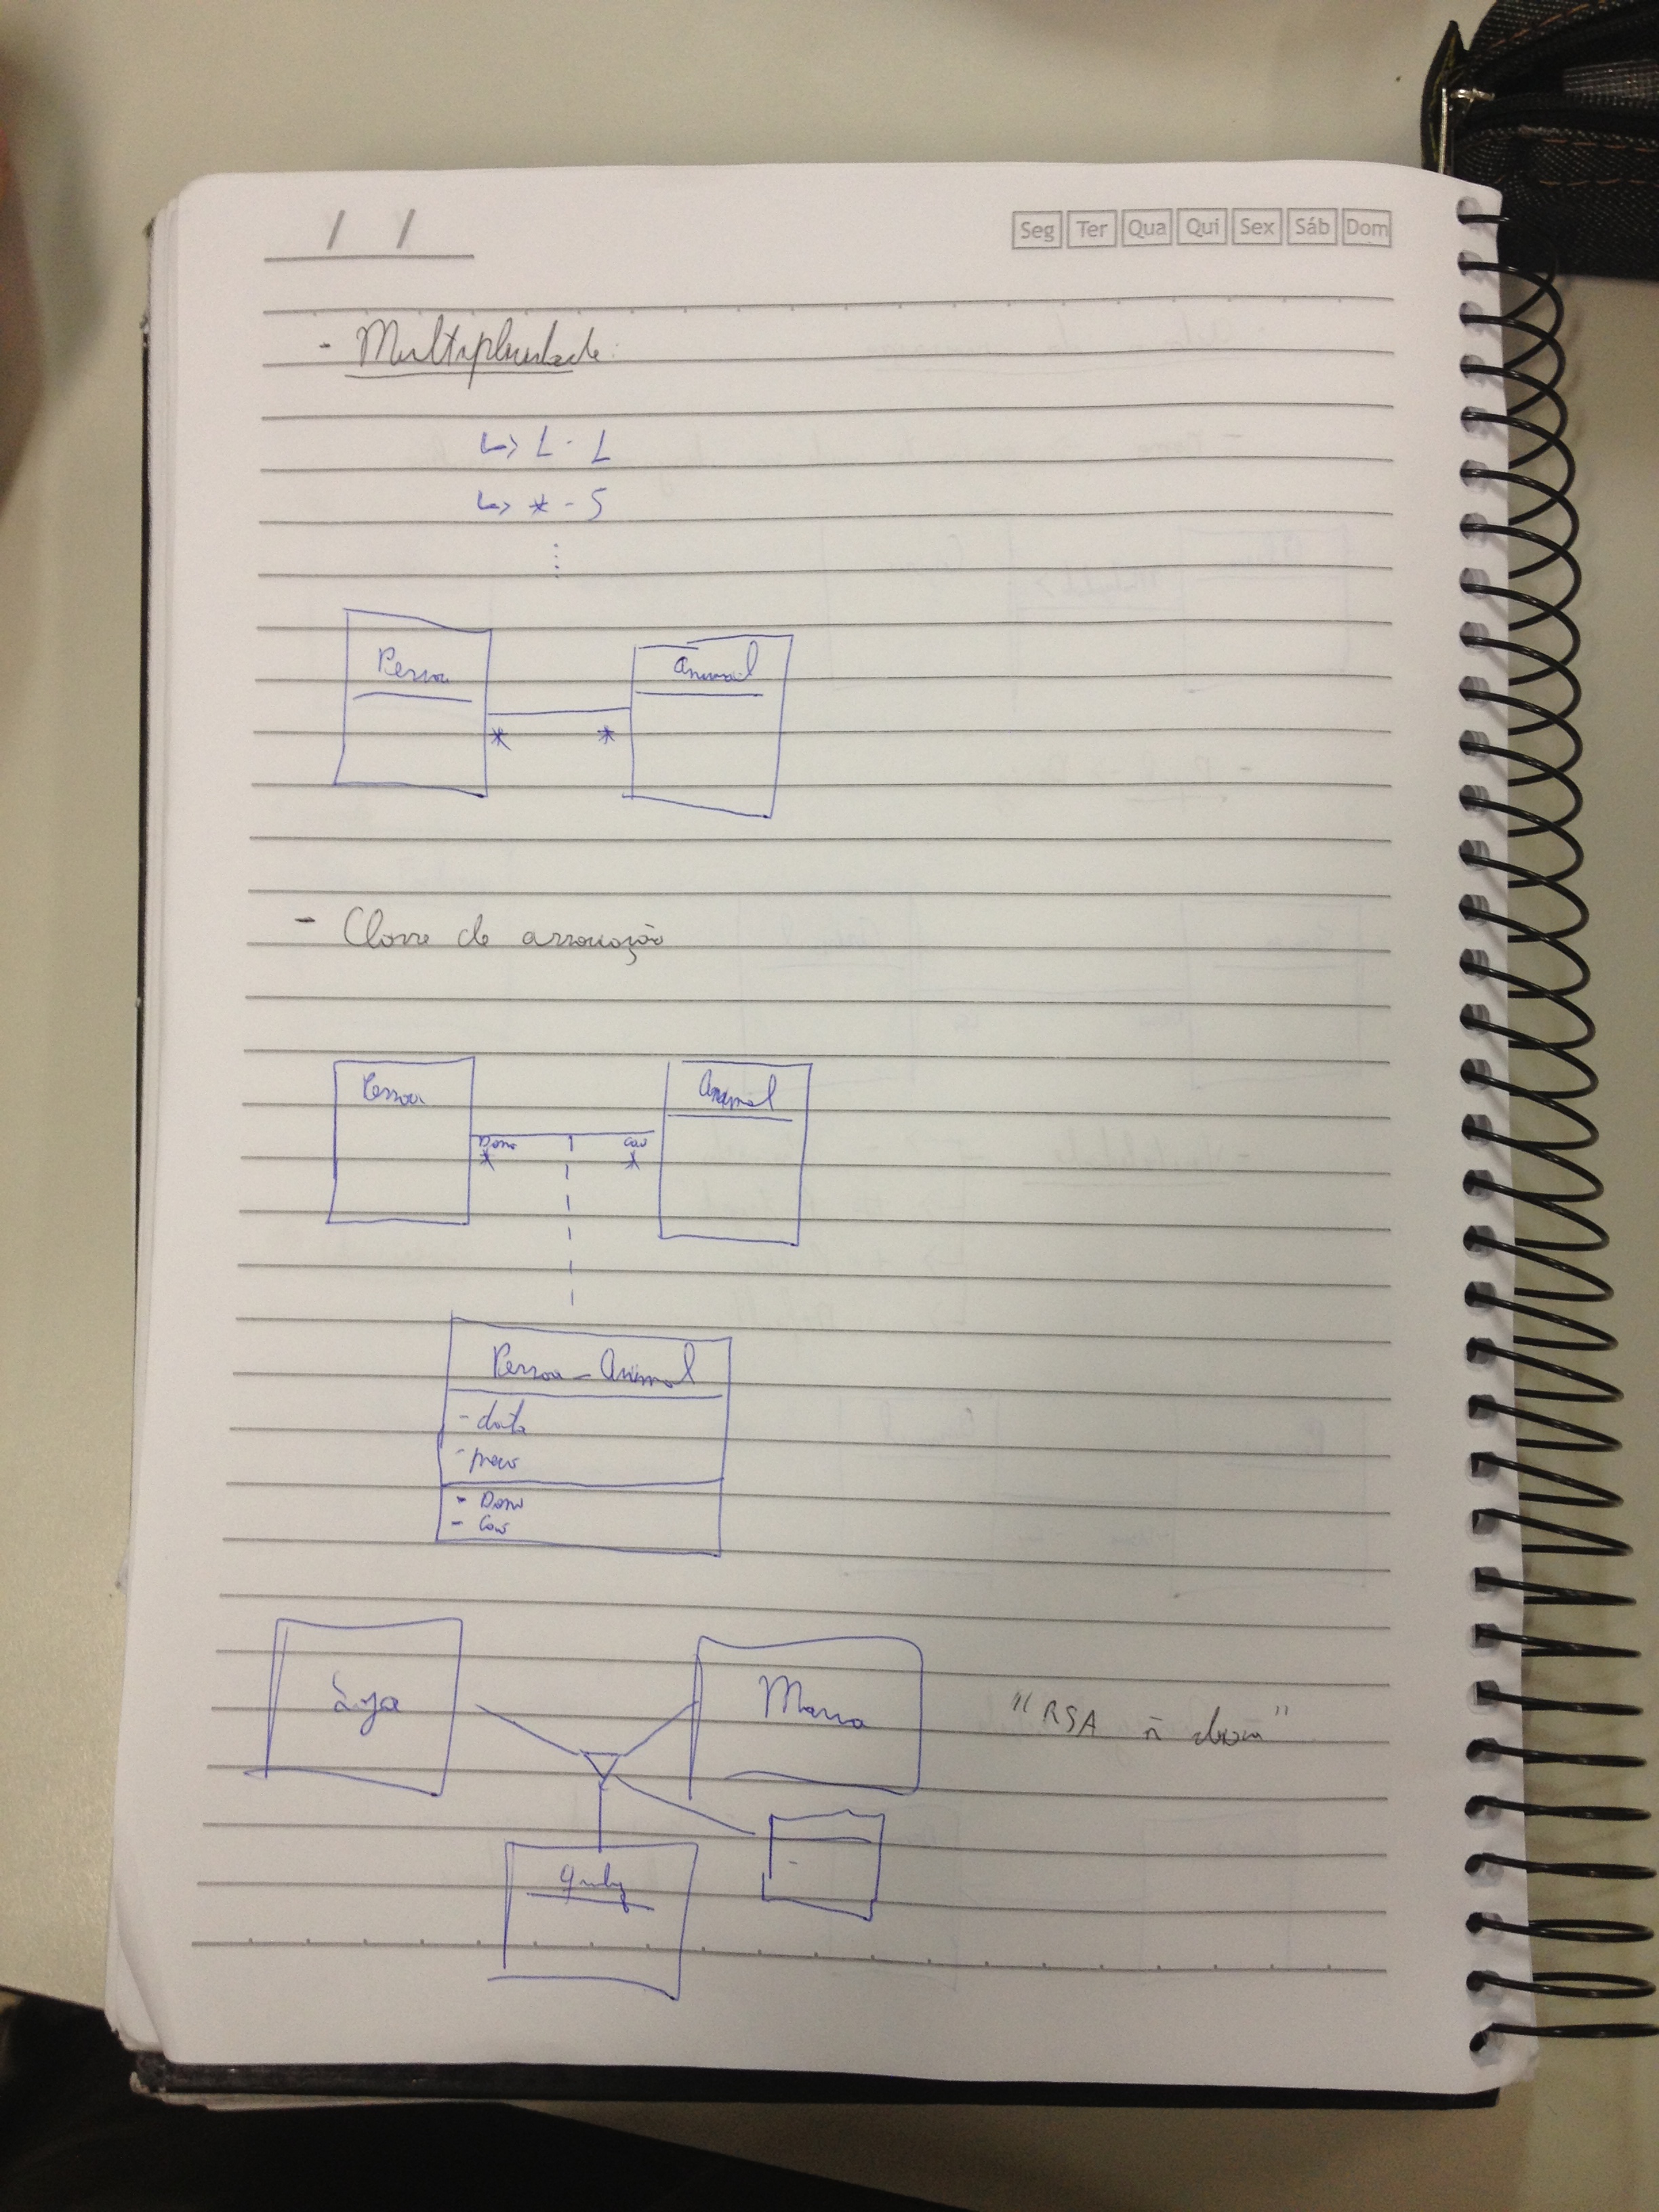 / /
Seg Ter Qua Qui Sex Sáb Dom
- Multiplicidade:
↳ 1 - 1
↳ * - 5
⋮
Pessoa Animal
* *
- Classe de associação
Pessoa Animal
Dono Cao
* *
Pessoa - Animal
- data
- preco
- Dono
- Cao
Loja Marca
"RSA ñ deixa"